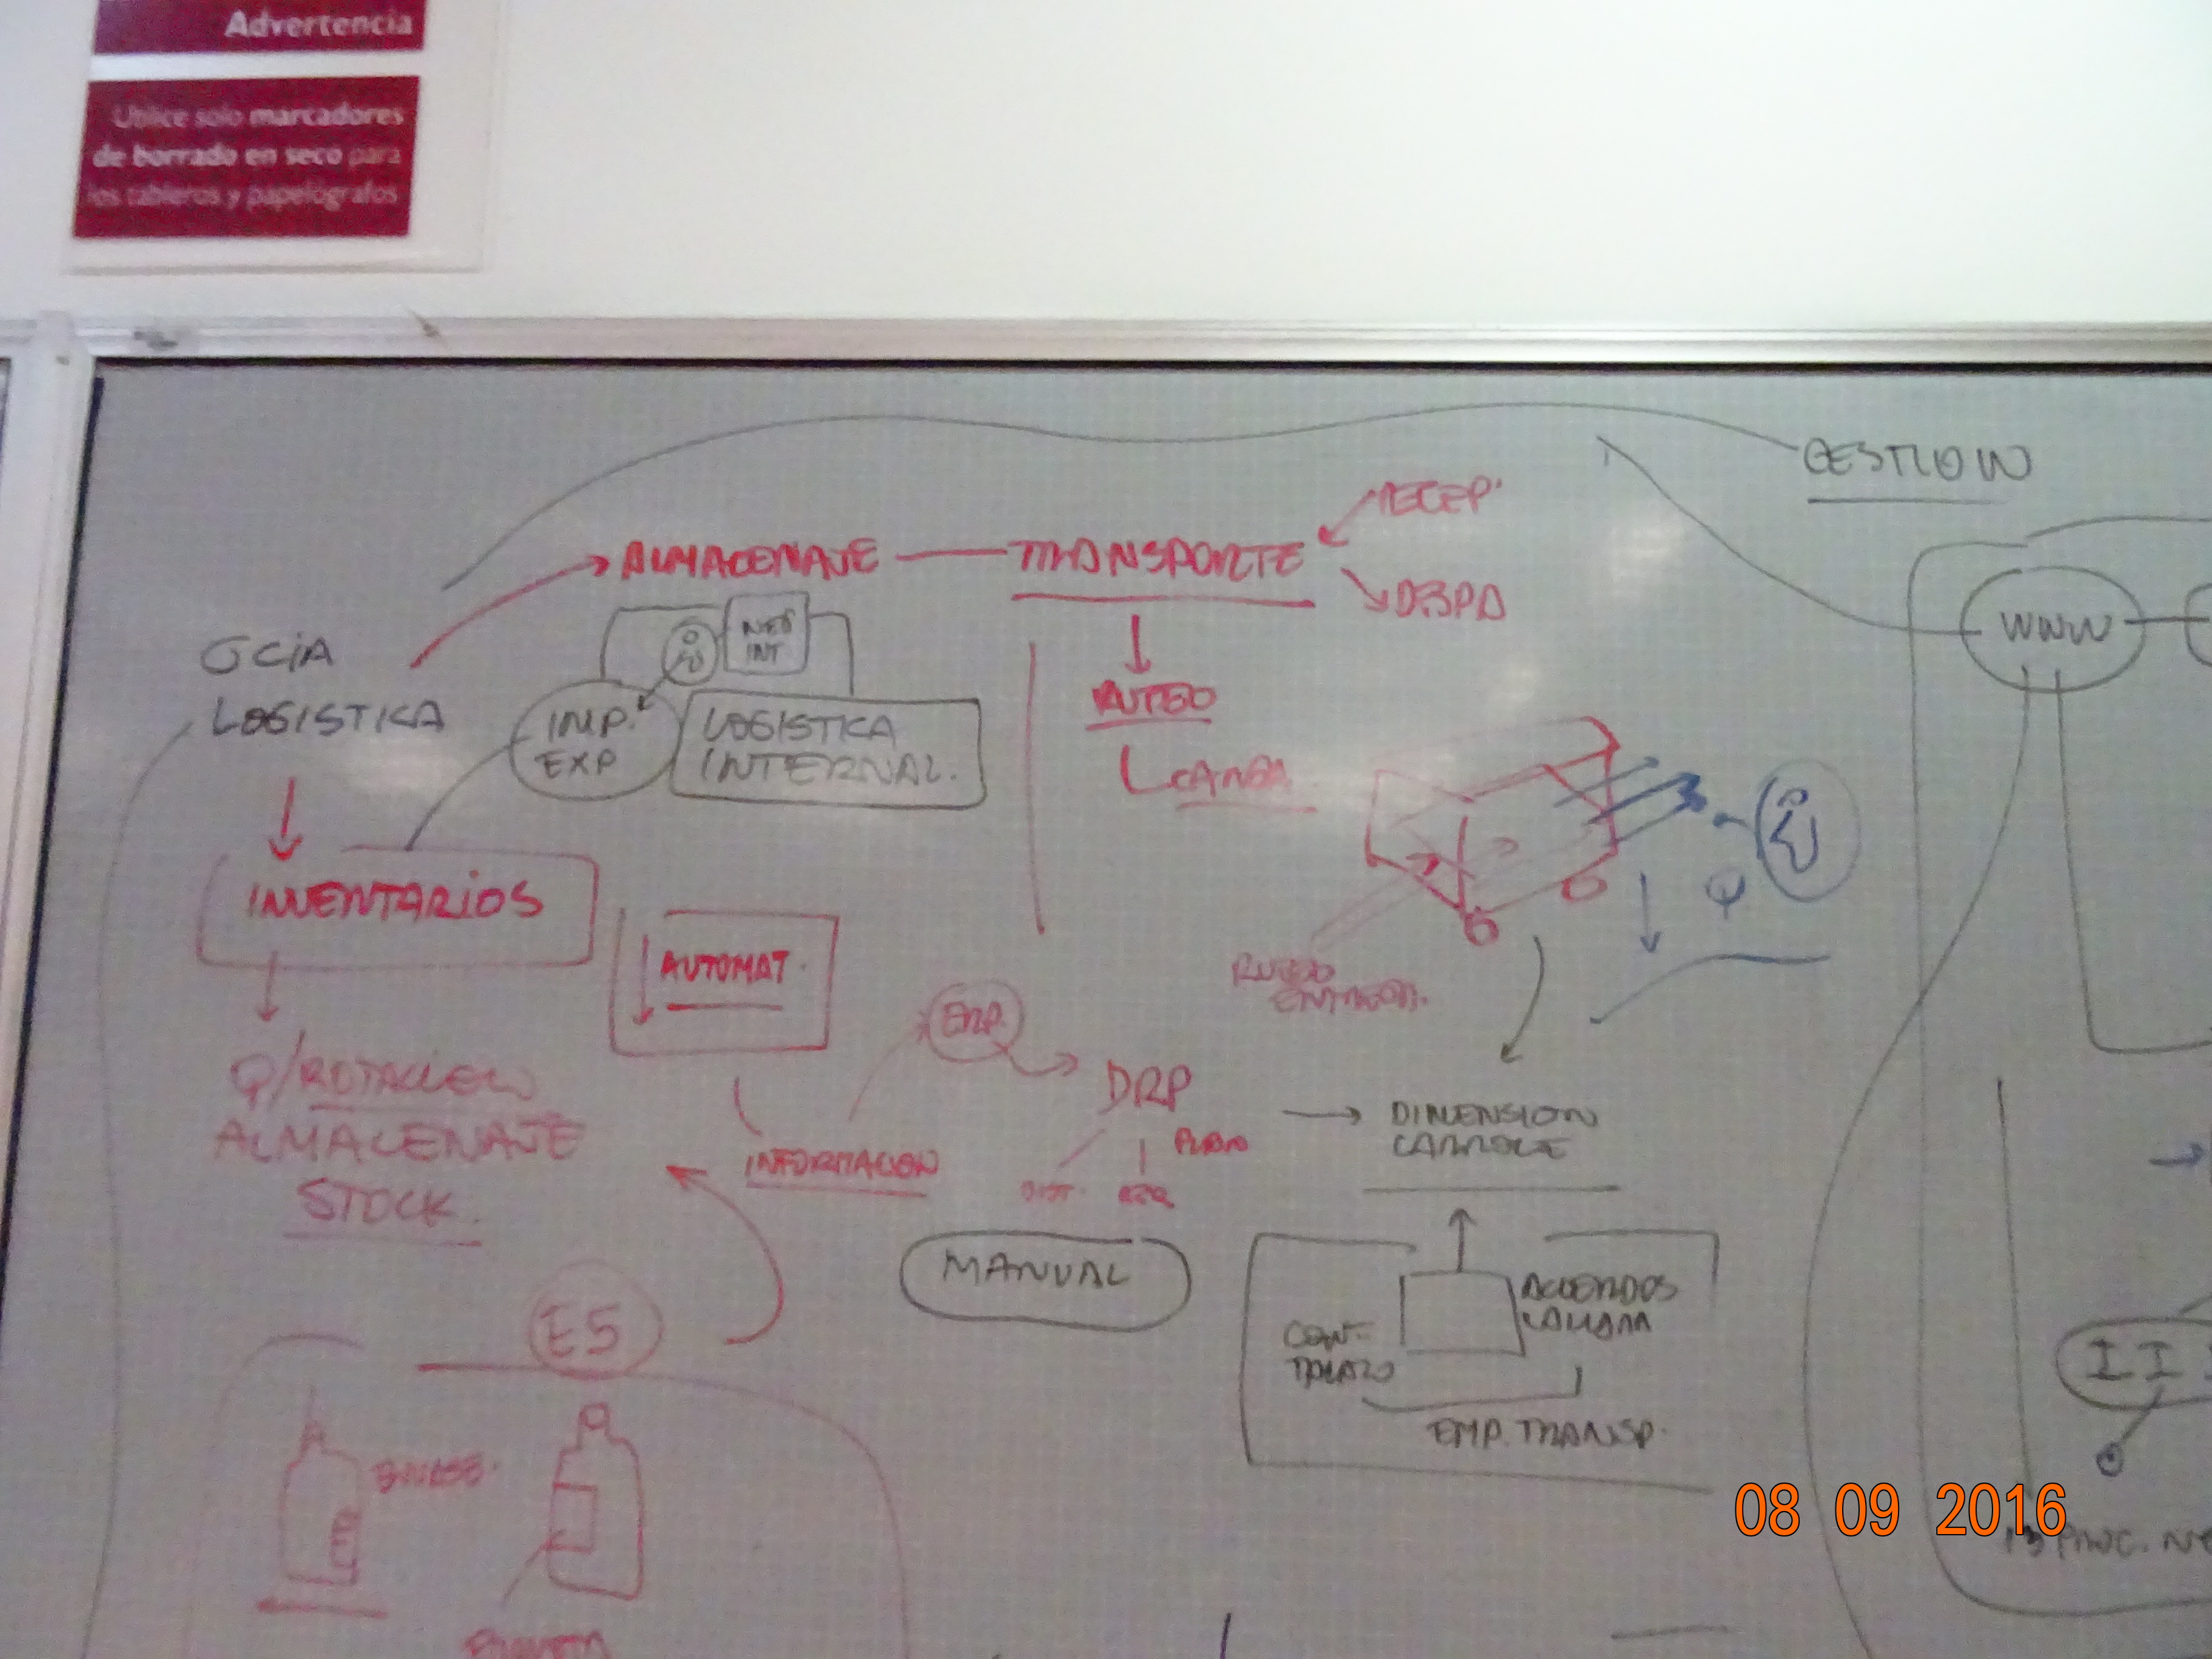 Advertencia
Utilice solo marcadores
de borrado en seco para
los tableros y papelógrafos
GESTION
RECEP.
ALMACENAJE
TRANSPORTE
DESPA
GCIA
LOGISTICA
NEG
INT
WWW
IMP.
EXP
LOGISTICA
INTERNAL.
RUTEO
CARGA
INVENTARIOS
AUTOMAT.
Q
RUTEO
ERP
Q/ROTACION
ALMACENAJE
STOCK.
DRP
PLAN
INFORMACION
DIST.
DIMENSION
MANUAL
E5
ACUERDOS
CON-
TRATO
EMP. TRANSP.
ENVASE.
II
08 09 2016